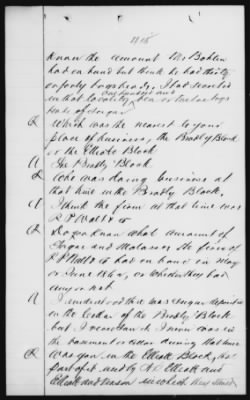 1115
know the amount Mr Bohlen
had on hand but think he had thirty
or forty hogsheads. I had stored
in that locality one hundred and ten or twelve hogs
heads of Sugar
Q Which was the nearest to your
place of business, the Bradly Block
or the Elliott Block
A The Bradly Block.
Q Who was doing business at
that time in the Bradly Block,
A I think the firm at that time was
Q Do you know what amount of
Sugar and Molasses the firm of
had on hand in May
or June 1864, or whether they had
any or not.
A I understood there was Sugar deposited
in the Cellar of the Bradly Block
but I never saw it I never was in
the basement or cellar during that time
Q Was you in the Elliott Block, that
part of it used by A. Elliott and
Elliott and in which they stored